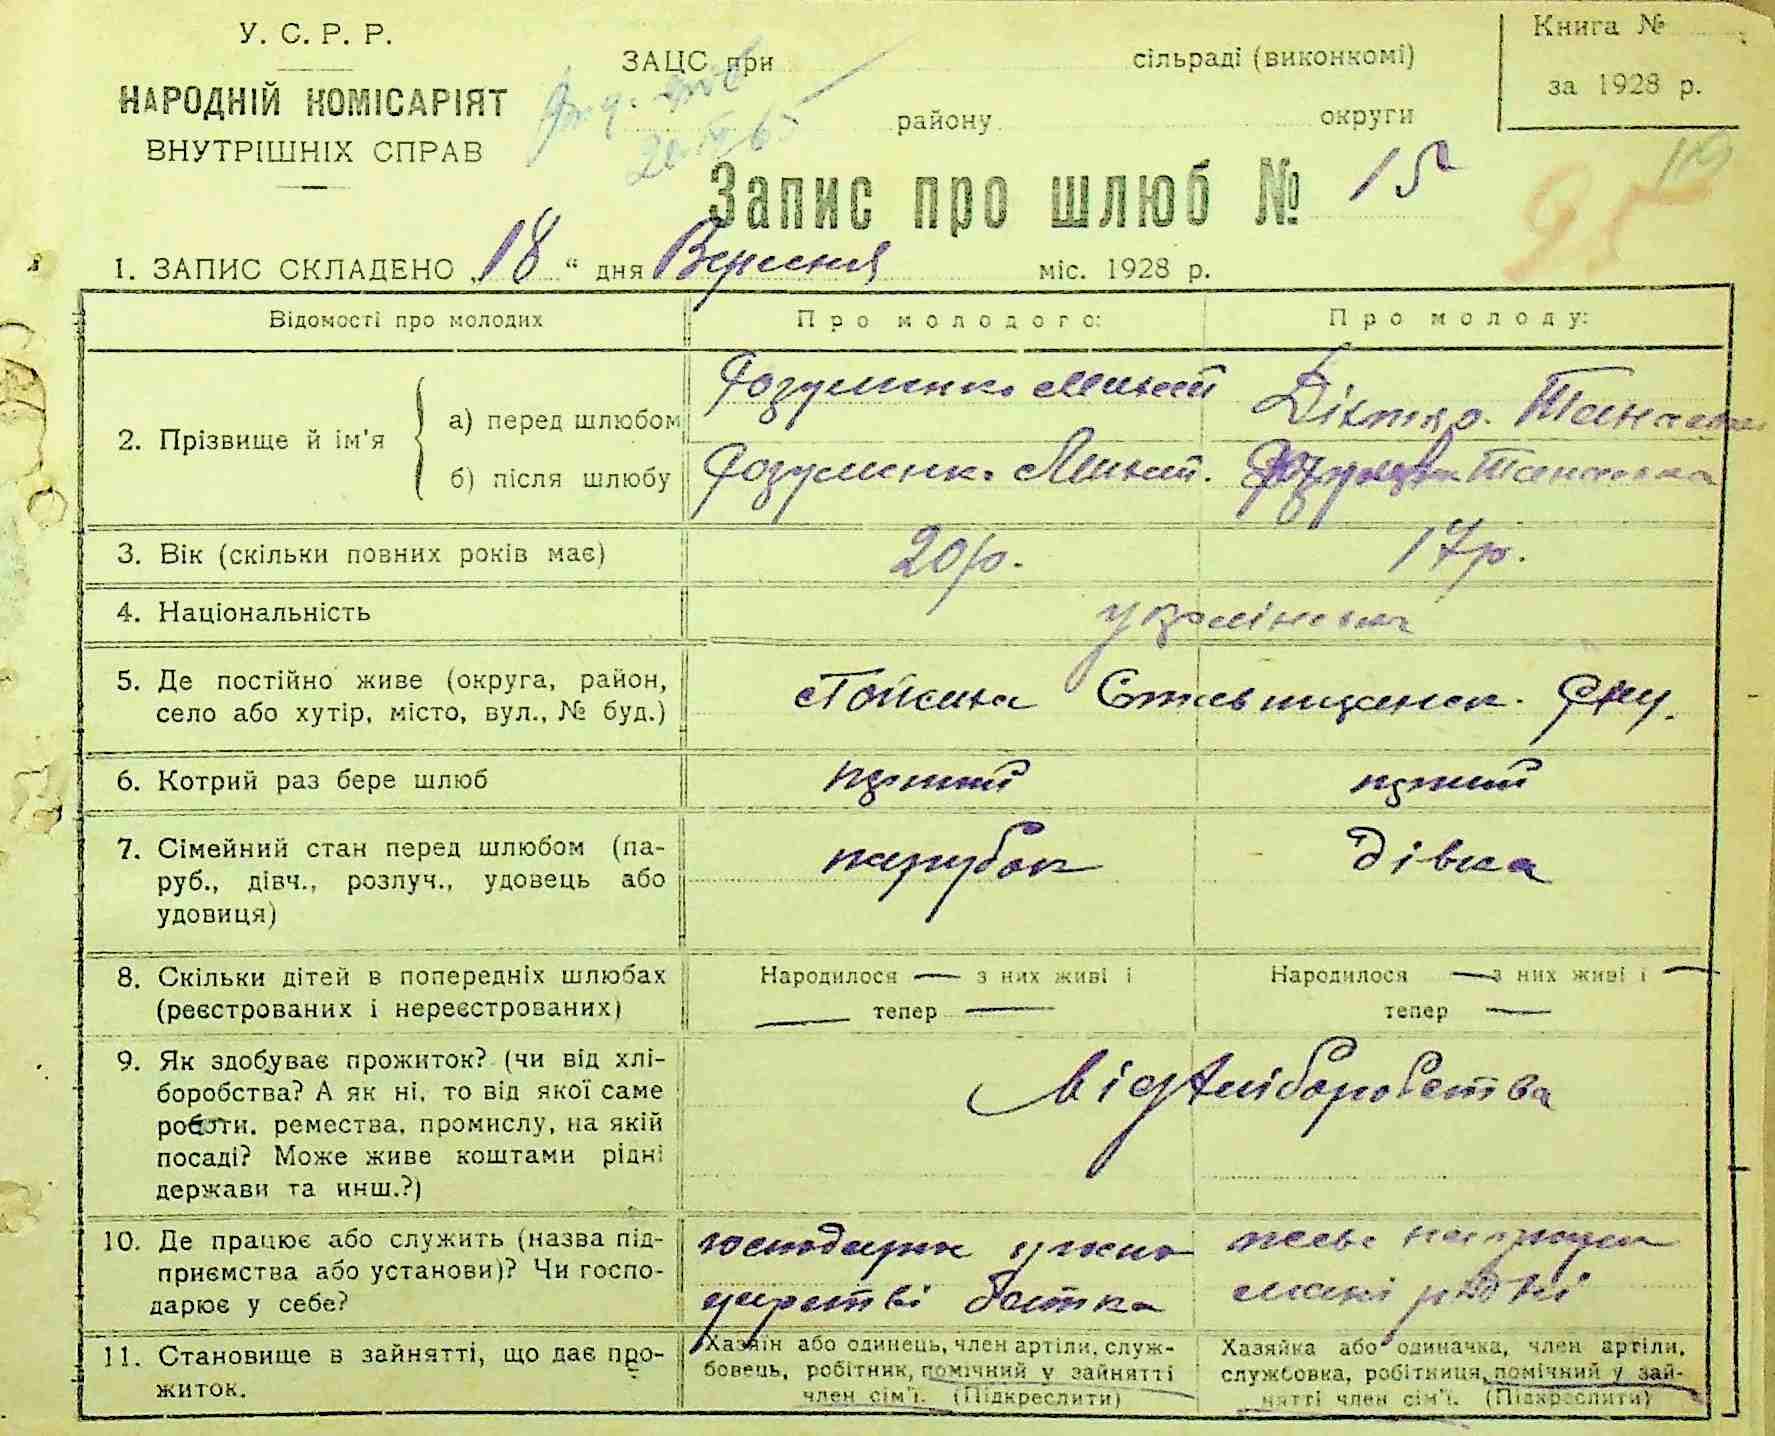 У. С. Р. Р.
НАРОДНІЙ КОМІСАРІЯТ
ВНУТРІШНІХ СПРАВ
ЗАЦС при сільраді (виконкомі)
району округи
Книга №
за 1928 р.
Запис про шлюб № 15
95
1. ЗАПИС СКЛАДЕНО „18“ дня Вересня міс. 1928 р.
Відомості про молодих
Про молодого:
Про молоду:
2. Прізвище й ім'я
а) перед шлюбом
Розуменко
б) після шлюбу
Розуменко
3. Вік (скільки повних років має)
20 р.
17 р.
4. Національність
українська
5. Де постійно живе (округа, район,
село або хутір, місто, вул., № буд.)
Ставищанск.
6. Котрий раз бере шлюб
перший
перший
7. Сімейний стан перед шлюбом (па-
руб., дівч., розлуч., удовець або
удовиця)
парубок
дівка
8. Скільки дітей в попередніх шлюбах
(реєстрованих і нереєстрованих)
Народилося — з них живі і
— тепер —
Народилося — з них живі і —
тепер —
9. Як здобуває прожиток? (чи від хлі-
боробства? А як ні, то від якої саме
роботи, ремества, промислу, на якій
посаді? Може живе коштами рідні
держави та инш.?)
від хліборобства
10. Де працює або служить (назва під-
приємства або установи)? Чи госпо-
дарює у себе?
батька
рідні
11. Становище в зайнятті, що дає про-
житок.
Хазяїн або одинець, член артіли, служ-
бовець, робітник, помічний у зайнятті
член сім'ї. (Підкреслити)
Хазяйка або одиначка, член артіли,
службовка, робітниця, помічний у зай-
нятті член сім'ї. (Підкреслити)